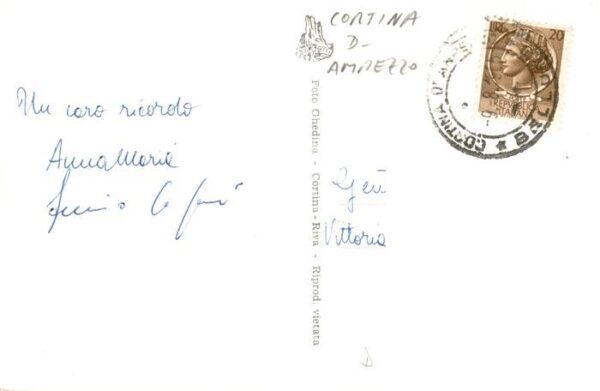 CORTINA
D-
AMPEZZO
LIRE 20
REPUBBLICA
ITALIANA
CORTINA D'AMPEZZO
Un caro ricordo
AnnaMaria
Foto Ghedina - Cortina-Riva - Riprod. vietata
Vittoria
D